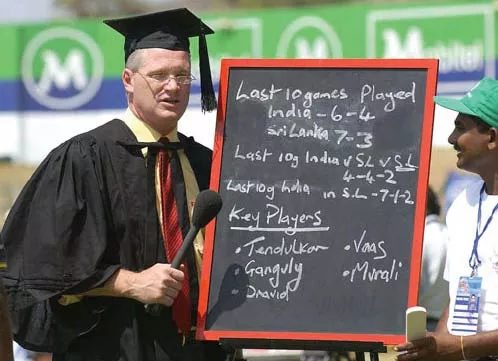 M
M
Mobitel
Last 10 games Played
India - 6-4
Sri Lanka 7-3
Last 10g India v S.L v S.L
4-4-2
Last 10g India in S.L - 7-1-2
Key Players
• Tendulkar • Vaas
• Ganguly • Murali
• Dravid